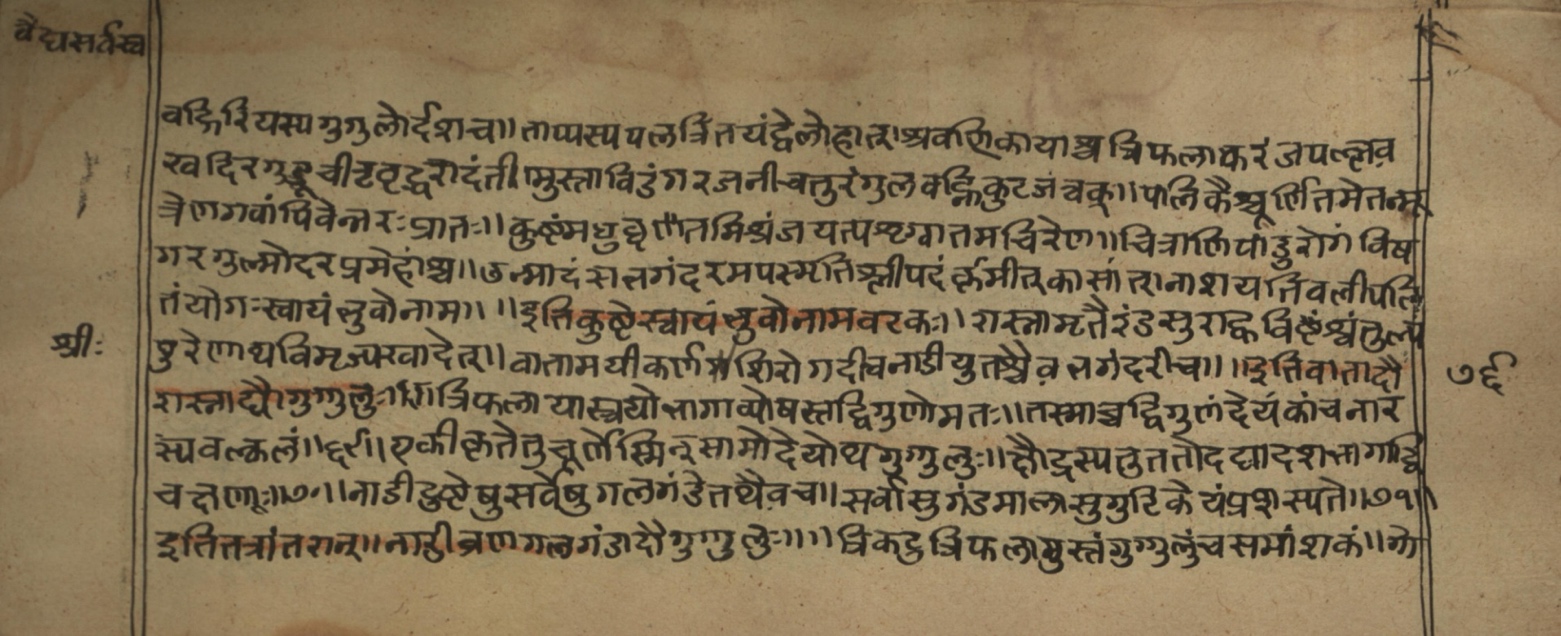 वैद्यसर्वस्व
वह्निरियस्य गुगुलोर्दश च॥ ताप्यस्य पलत्रितयं द्वे लोहात् श्रवणिकायाश्च त्रिफलाकरंजपल्लव
खदिरगुडूचीत्रवृद्धरादंती॥मुस्ताविडंगरजनीचतुरंगुलवह्निकुटजंचक्र॥ पालिकैश्चूर्णितमेतन्मू
त्रेण गवां पिवेन्नरः प्रातः॥ कुष्ठं मधुघृतमिश्रं जयत्पसृग्वातमचिरेण॥ चित्राणि पांडुरोगं विष
गरगुल्मोदरप्रमेहांश्च॥ उन्मादं सभगंदरमपस्मृतिश्लीपदं कृमीत् कासां त्रानाशयति वलीपलि
तं योगः स्वायंभुवो नाम॥ ॥इति कुष्ठे स्वायंभुवो नाम वटकः॥ रास्नामृतैरंडसुराह्व विष्ठंश्वं तुल्यं
पुरेणाथ विमृज्य खादेत्॥ वातामयीकर्ण शिरोगदी च नाडीयुतश्चैव भगंदरी च॥ ॥इति वातादौ
रास्नाद्यो गुग्गुलुः॥ त्रिफलायास्त्रयो भागा व्योषस्तद्विगुणो मतः॥ तस्माच्च द्विगुलं देयं कांचनार
स्य वल्कलं॥६९॥ एकीकृते तु चूर्णेस्मिन् सामो देयोथ गुग्गुलुः॥ क्षौद्रस्य तु ततो दद्याद्दशभागान्वि
चक्षणः॥७०॥ नाडीदुष्टेषु सर्वेषु गलगंडे तथैव च॥ सर्वासु गंडमालासु गुटिकेयं प्रशस्यते॥७१॥
इति तत्रांतरात्॥ नाडीव्रणगलगंडादौ गुग्गुलुः॥॥ त्रिकटु त्रिफला मुस्तं गुग्गुलुं च समांशकं॥ गो
श्रीः
७६